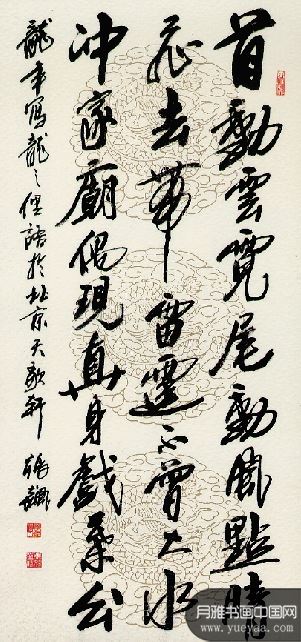 首動雲霓尾動風點睛
飛去帶雷霆不曾大水
冲家廟偶現真身戲葉公
龍年寫龍之俚語於北京天歌軒 張飆
月雅书画中国网
www.yueyaa.com